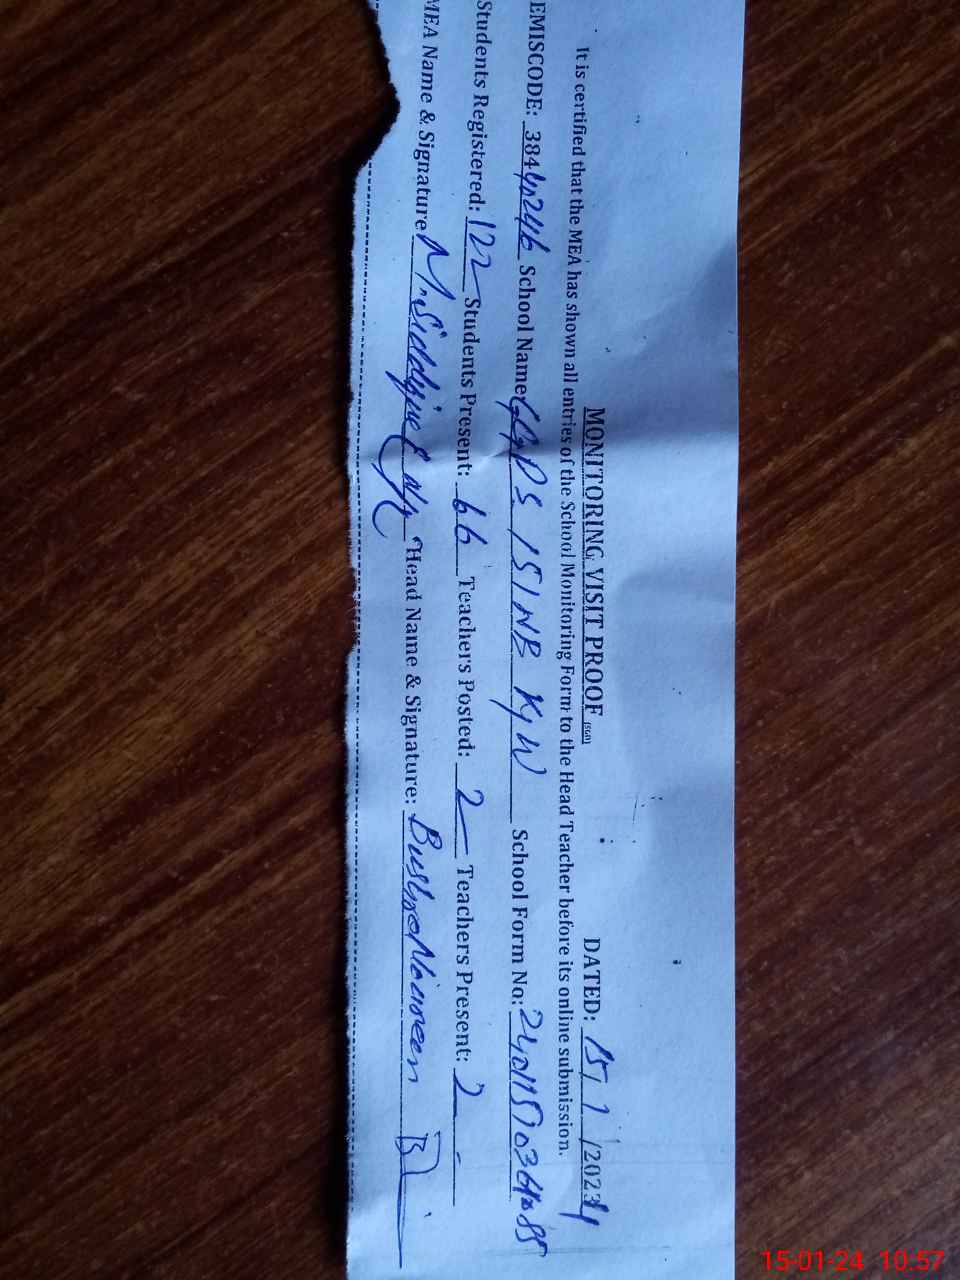 MONITORING VISIT PROOF (SGD) DATED: 15/1/2024
It is certified that the MEA has shown all entries of the School Monitoring Form to the Head Teacher before its online submission.
EMISCODE: 38440246 School Name GGPS 151NB KyW School Form No:
Students Registered: 122 Students Present: 66 Teachers Posted: 2 Teachers Present: 2
MEA Name & Signature M. Siddique Head Name & Signature: Bushra Noureen
15-01-24 10:57